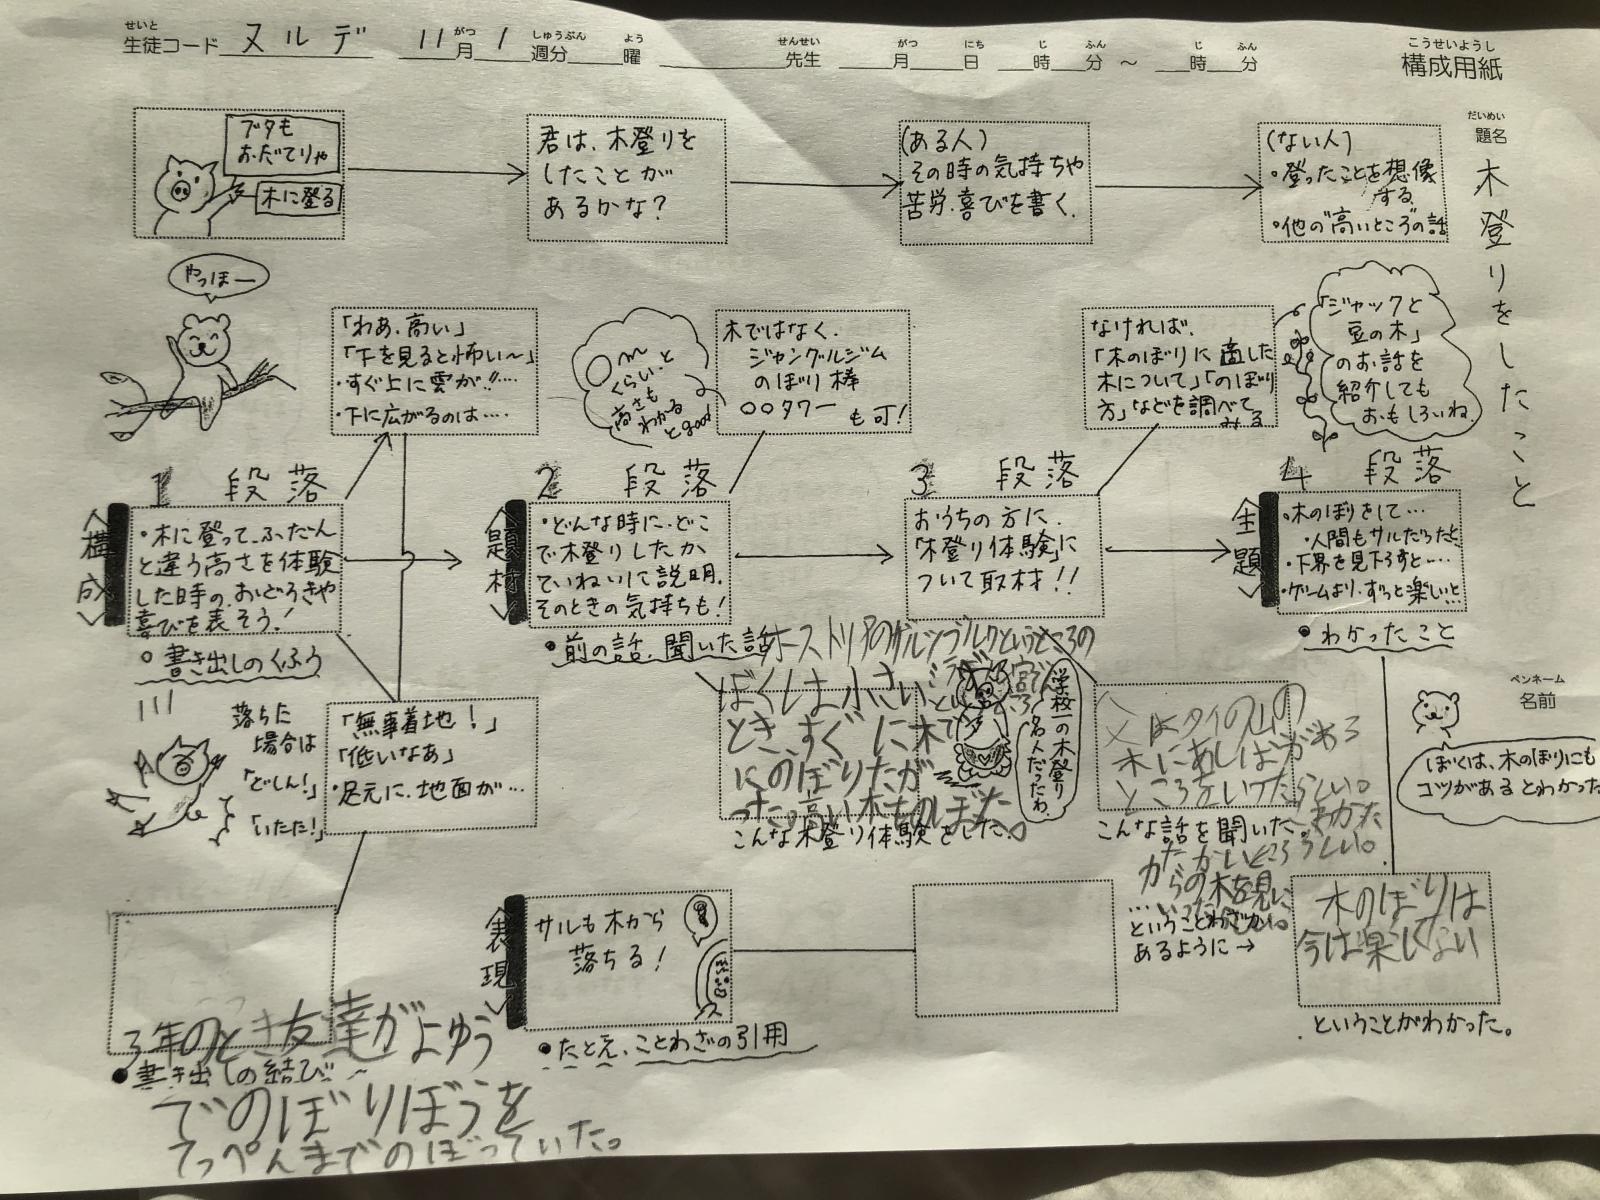 せいと
生徒コード ヌルデ 11月 1週分 曜 先生 月 日 時 分 ～ 時 分
がつ しゅうぶん よう せんせい がつ にち じ ふん じ ふん
こうせいようし
構成用紙
だいめい
題名
木登りをしたこと
ブタも
おだてりゃ
木に登る
君は、木登りを
したことが
あるかな？
(ある人)
その時の気持ちや
苦労、喜びを書く。
(ない人)
・登ったことを想像
する
・他の"高いところ"の話
やっほー
「わあ、高い」
「下を見ると怖い～」
・すぐ上に雲が!!‥‥
・下に広がるのは‥‥
〇m
くらい…と
高さも
わかる
とgood
木ではなく、
ジャングルジム
のぼり棒
〇〇タワー
も可！
なければ、
「木のぼりに適した
木について」「のぼり
方」などを調べて
みる
「ジャックと
豆の木」
のお話を
紹介しても
おもしろいね
1 段落
構成
・木に登って、ふだん
と違う高さを体験
した時の、おどろきや
喜びを表そう！
○書き出しのくふう
2 段落
題材
・どんな時に、どこ
で木登りしたか
ていねいに説明。
そのときの気持ちも！
●前の話、聞いた話
3 段落
おうちの方に、
「木登り体験」に
ついて取材!!
4 段落
主題
・木のぼりをして…
・人間もサルだったと
・下界を見下ろすと‥‥
・ゲームより、ずっと楽しいと
●わかったこと
落ちた
場合は
「どしん！」
「いたた！」
「無事着地！」
「低いなあ」
・足元に、地面が…
オーストリアのグルンブルクというところの
ぼくは小さい
とき、すぐに木で
にのぼりたが
った。高い木ものぼった。
こんな木登り体験をした。
学校一の木登り
名人だったわ。
父はタイの山の
木にあしばがある
ところをいったらしい。
こんな話を聞いた。
たかいところ
からの木を見に
…という
ことわざが
あるように→
ペンネーム
名前
ぼくは、木のぼりにも
コツがあるとわかった
3年のとき友達がよゆう
●書き出しの結び
でのぼりぼうを
てっぺんまでのぼっていた。
表現
サルも木から
落ちる！
●たとえ、ことわざの引用
木のぼりは
今は楽しくない
ということがわかった。